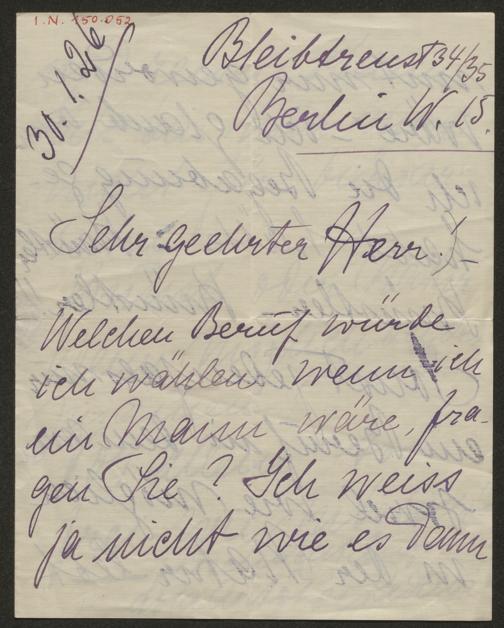 I.N. 150.052
30.1.26
Bleibtreust 34/35
Berlin W. 15.
Sehr geehrter Herr!
Welchen Beruf würde
ich wählen wenn ich
ein Mann wäre, fra-
gen Sie? Ich weiss
ja nicht wie es dann